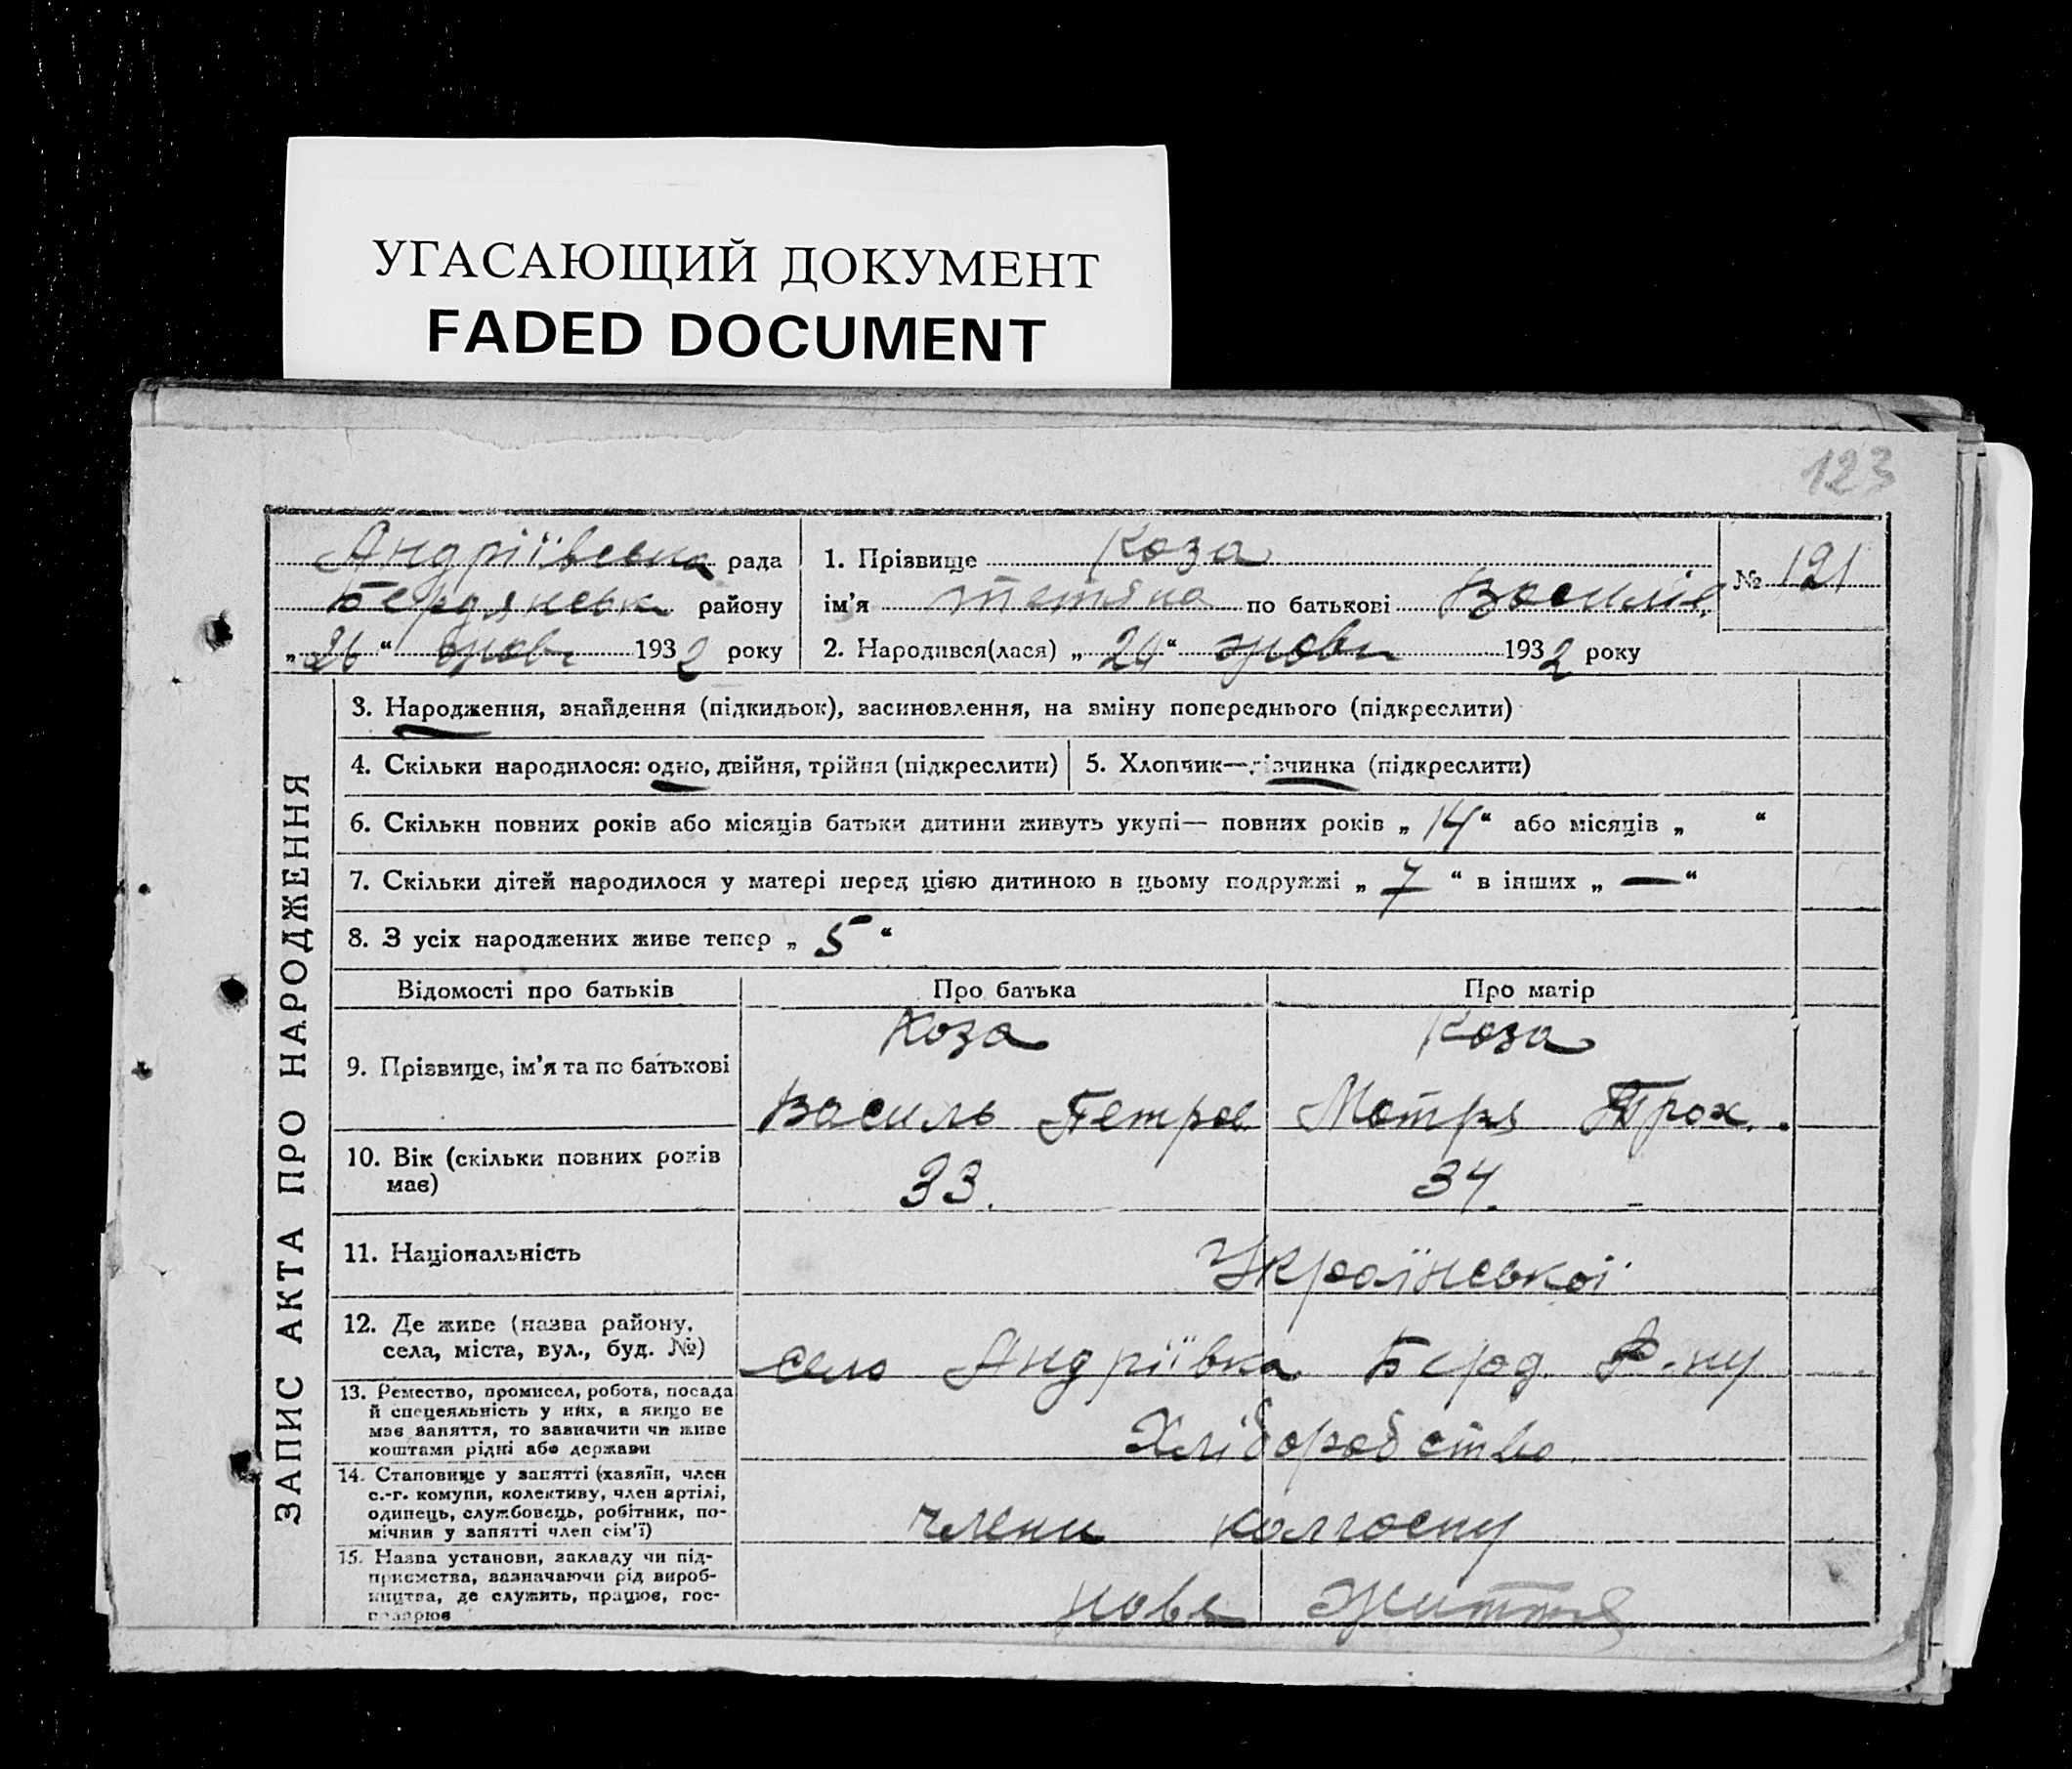 УГАСАЮЩИЙ ДОКУМЕНТ
FADED DOCUMENT
123
Андріївська рада
Бердянськ району
„26“ жовт 1932 року
1. Прізвище Коза
ім’я Тетяна по батькові Василів.
№ 121
2. Народився(лася) „20“ жовтн 1932 року
ЗАПИС АКТА ПРО НАРОДЖЕННЯ
3. Народження, знайдення (підкидьок), засиновлення, на зміну попереднього (підкреслити)
4. Скільки народилося: одно, двійня, трійня (підкреслити)
5. Хлопчик—дівчинка (підкреслити)
6. Скільки повних років або місяців батьки дитини живуть укупі— повних років „14“ або місяців „ “
7. Скільки дітей народилося у матері перед цією дитиною в цьому подружжі „7“ в інших „—“
8. З усіх народжених живе тепер „5“
Відомості про батьків Про батька Про матір
9. Прізвище, ім’я та по батькові
Коза Коза
Василь Петров. Мотря Трох.
10. Вік (скільки повних років
має)
33. 34.
11. Національність
Української
12. Де живе (назва району,
села, міста, вул., буд. №)
село Андріївка Берд. Р-ну
13. Ремество, промисел, робота, посада
й спецеяльність у них, а якщо не
має заняття, то зазначити чи живе
коштами рідні або держави
Хліборобство.
14. Становище у занятті (хазяїн, член
с.-г. комуни, колективу, член артілі,
одинець, службовець, робітник, по-
мічнив у занятті член сім’ї)
члени колгоспу
15. Назва установи, закладу чи під-
приємства, зазначаючи рід вироб-
ництва, де служить, працює, гос-
подарює
Нове Життя